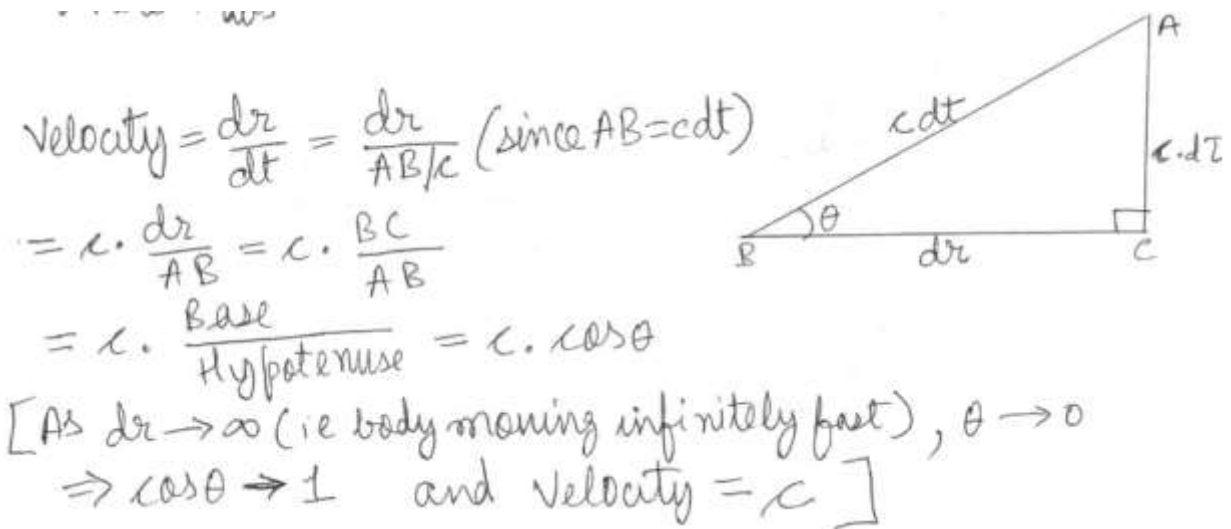 Velocity = dr/dt = dr/(AB/c) (since AB=cdt)
= c. dr/AB = c. BC/AB
= c. Base/Hypotenuse = c. cosθ
[As dr→∞ (ie body moving infinitely fast), θ→0
⇒ cosθ → 1 and Velocity = c ]
A
cdt
c.dτ
θ
B
dr
C